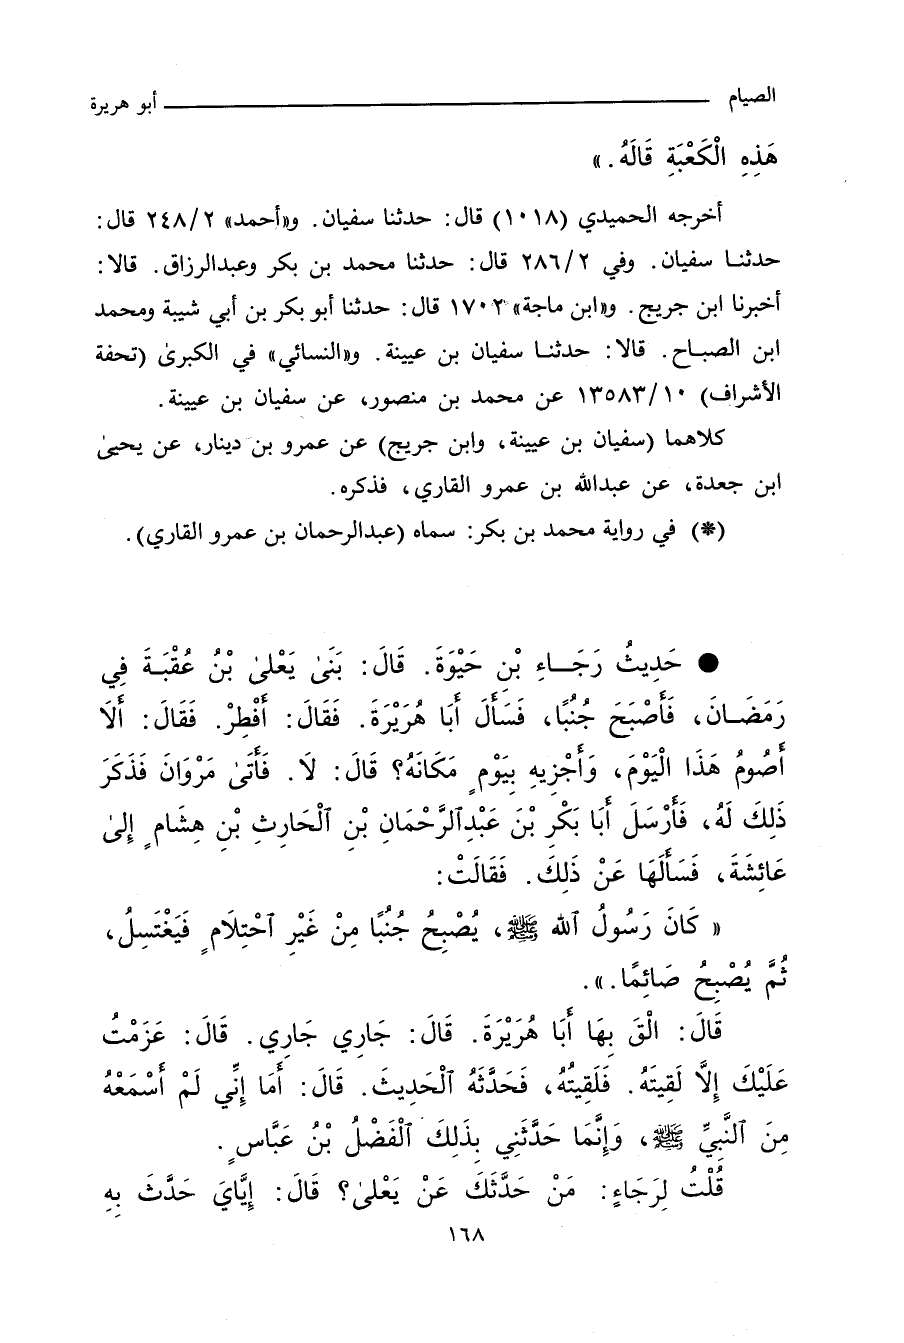 الصيام ــــــــــ أبو هريرة
هَذِهِ الْكَعْبَةِ قَالَهُ . »
أخرجه الحميدي (١٠١٨) قال: حدثنا سفيان. و«أحمد» ٢٤٨/٢ قال:
حدثنا سفيان. وفي ٢٨٦/٢ قال: حدثنا محمد بن بكر وعبدالرزاق. قالا:
أخبرنا ابن جريج. و«ابن ماجة» ١٧٠٢ قال: حدثنا أبو بكر بن أبي شيبة ومحمد
ابن الصباح. قالا: حدثنا سفيان بن عيينة. و«النسائي» في الكبرىٰ (تحفة
الأشراف) ١٣٥٨٣/١٠ عن محمد بن منصور، عن سفيان بن عيينة.
كلاهما (سفيان بن عيينة، وابن جريج) عن عمرو بن دينار، عن يحيىٰ
ابن جعدة، عن عبدالله بن عمرو القاري، فذكره.
(*) في رواية محمد بن بكر: سماه (عبدالرحمان بن عمرو القاري).
● حَدِيثُ رَجَاءِ بْنِ حَيْوَةَ. قَالَ: بَنَىٰ يَعْلىٰ بْنُ عُقْبَةَ فِي
رَمَضَانَ، فَأَصْبَحَ جُنُبًا، فَسَأَلَ أَبَا هُرَيْرَةَ. فَقَالَ: أَفْطِرْ. فَقَالَ: أَلَا
أَصُومُ هَذَا الْيَوْمَ، وَأَجْزِيهِ بِيَوْمٍ مَكَانَهُ؟ قَالَ: لَا. فَأَتَىٰ مَرْوَانَ فَذَكَرَ
ذَلِكَ لَهُ، فَأَرْسَلَ أَبَا بَكْرِ بْنَ عَبْدِالرَّحْمَانِ بْنِ الْحَارِثِ بْنِ هِشَامٍ إِلىٰ
عَائِشَةَ، فَسَأَلَهَا عَنْ ذَلِكَ. فَقَالَتْ:
« كَانَ رَسُولُ اللهِ ﷺ، يُصْبِحُ جُنُبًا مِنْ غَيْرِ احْتِلَامٍ فَيَغْتَسِلُ،
ثُمَّ يُصْبِحُ صَائِمًا.».
قَالَ: الْقَ بِهَا أَبَا هُرَيْرَةَ. قَالَ: جَارِي جَارِي. قَالَ: عَزَمْتُ
عَلَيْكَ إِلَّا لَقِيتَهُ. فَلَقِيتُهُ، فَحَدَّثَهُ الْحَدِيثَ. قَالَ: أَمَا إِنِّي لَمْ أَسْمَعْهُ
مِنَ النَّبِيِّ ﷺ، وَإِنَّمَا حَدَّثَنِي بِذَلِكَ الْفَضْلُ بْنُ عَبَّاسٍ.
قُلْتُ لِرَجَاءٍ: مَنْ حَدَّثَكَ عَنْ يَعْلىٰ؟ قَالَ: إِيَّايَ حَدَّثَ بِهِ
١٦٨